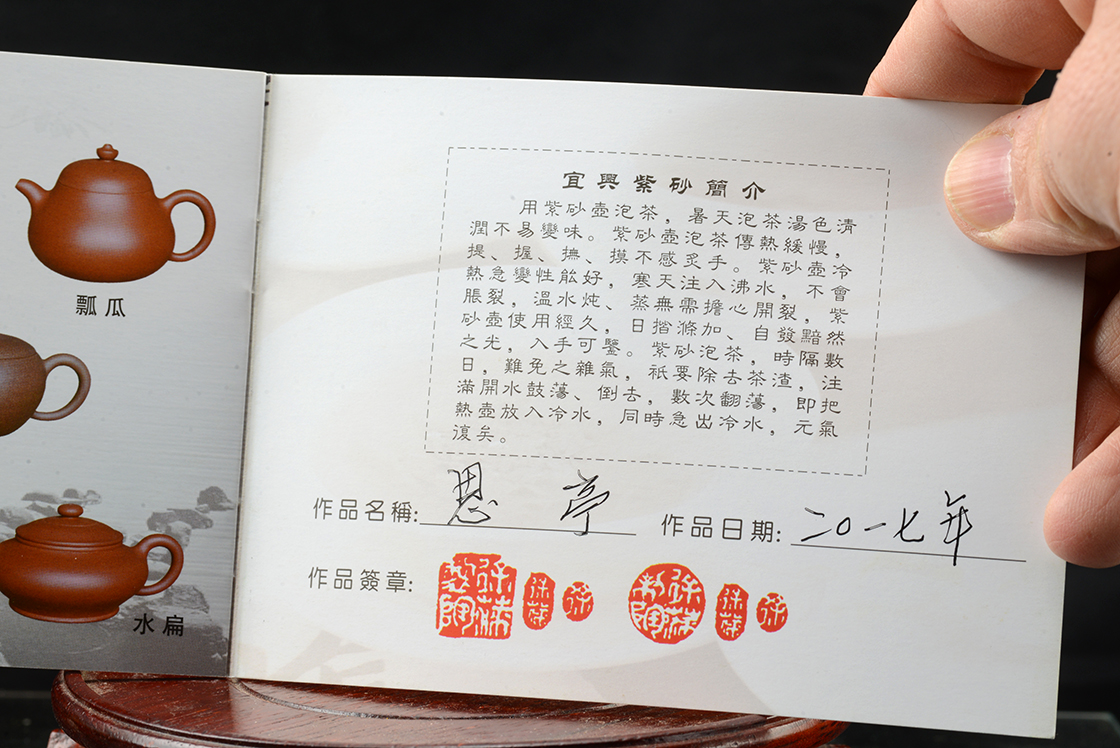 瓢瓜
水扁
宜興紫砂簡介
用紫砂壺泡茶，暑天泡茶湯色清
潤不易變味。紫砂壺泡茶傳熱緩慢，
提、握、撫、摸不感炙手。紫砂壺冷
熱急變性能好，寒天注入沸水，不會
脹裂，溫水炖、蒸無需擔心開裂，紫
砂壺使用經久，日揩滌加、自發黯然
之光，入手可鑒。紫砂泡茶，時隔數
日，難免之雜氣，祇要除去茶渣，注
滿開水鼓蕩、倒去，數次翻蕩，即把
熱壺放入冷水，同時急出冷水，元氣
復矣。
作品名稱: 思亭
作品日期: 二〇一七年
作品簽章: